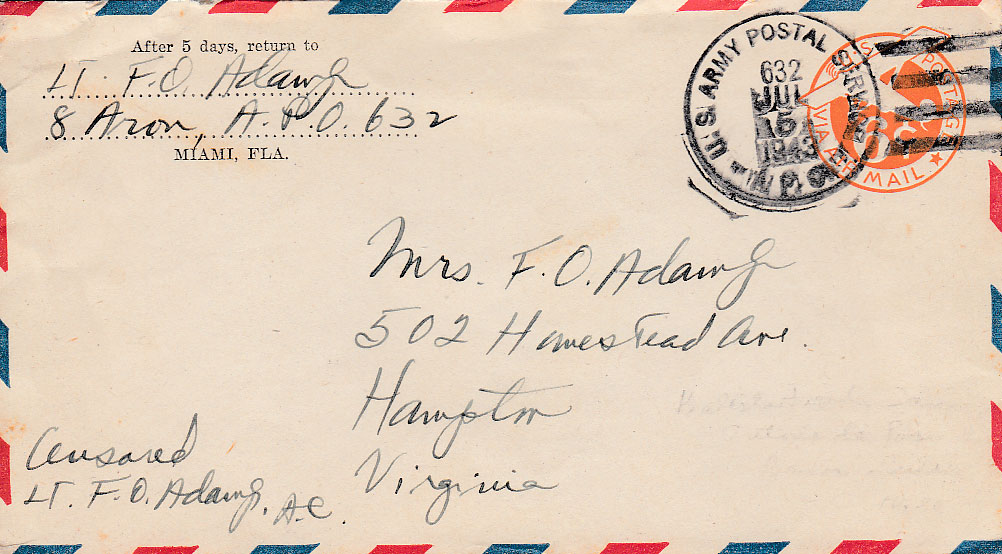 After 5 days, return to
Lt. F.O. Adams Jr
8 Aron, A.P.O. 632
MIAMI, FLA.
U.S. ARMY POSTAL SERVICE
632
JUL
15
1943
A.P.O.
U.S. POSTAGE
6c
VIA AIR MAIL
Mrs. F.O. Adams Jr
502 Homestead Ave.
Hampton
Virginia
Censored
Lt. F.O. Adams Jr, A.C.